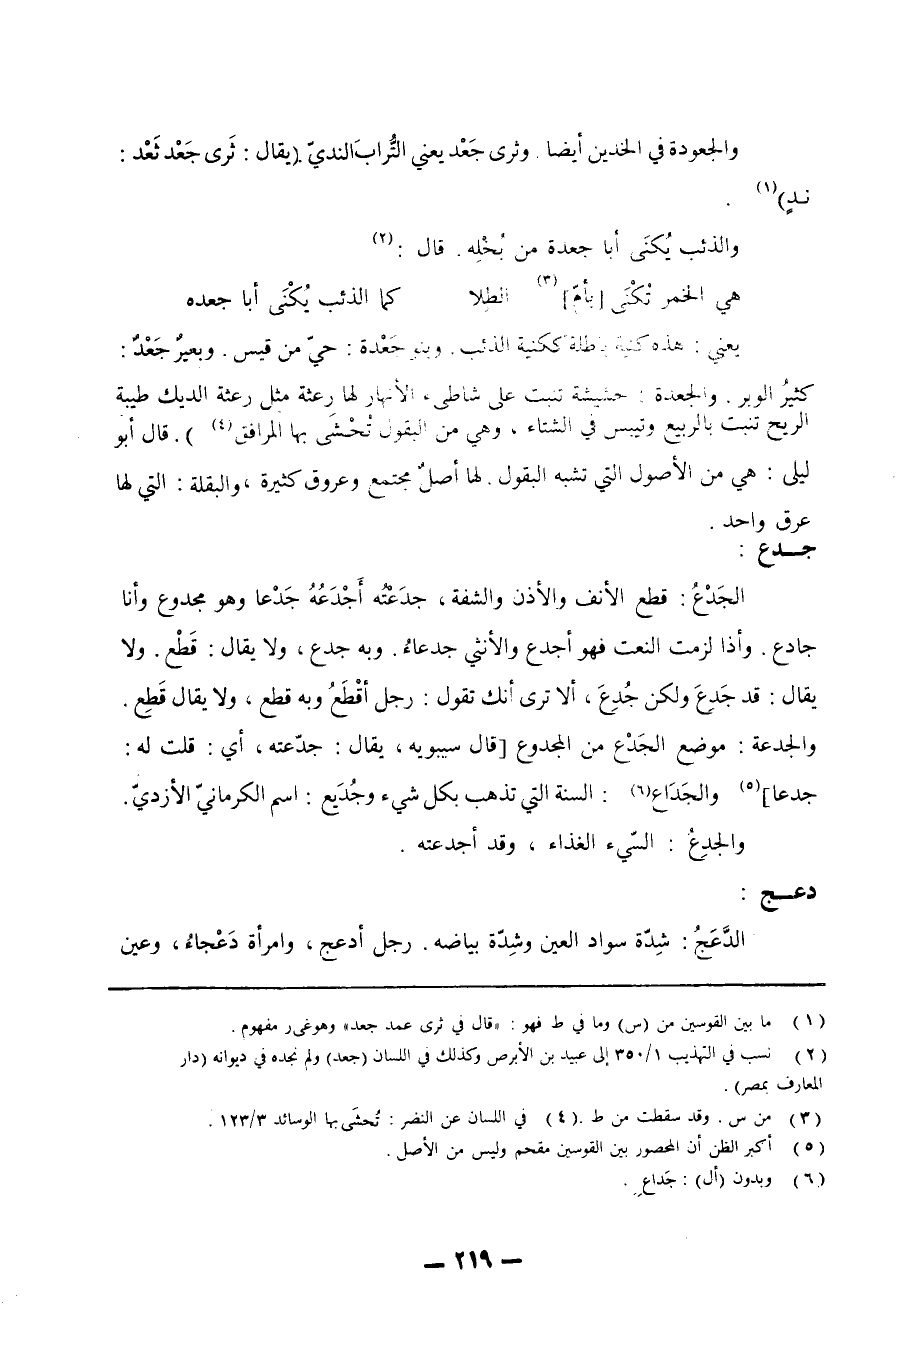 والجعودة في الخدين أيضا . وثرى جَعْد يعني التُّرابَ النديّ (يقال : ثَرى جَعْد ثَعْد :
نـدٍ)(١) .
والذئب يُكنَى أبا جعدة من بُخْله . قال :(٢)
هي الخمر تُكْنَى [بأمّ](٣) الطِلا كما الذئب يُكْنَى أبا جعده
يعني : هذه كنية باطلة ككنية الذئب . وبنو جَعْدة : حيّ من قيس . وبعيرٌ جَعْدٌ :
كثيرُ الوبر . والجعدة : حشيشة تنبت على شاطىء الأنهار لها رعثة مثل رعثة الديك طيبة
الريح تنبت بالربيع وتيبس في الشتاء ، وهي من البقول تُحْشَى بها المرافق(٤) ) . قال أبو
ليلى : هي من الأصول التي تشبه البقول . لها أصلٌ مجتمع وعروق كثيرة ، والبقلة : التي لها
عرق واحد .
جـــدع :
الجَدْعُ : قطع الأنف والأذن والشفة ، جدَعْتُه أَجْدَعُهُ جَدْعا وهو مجدوع وأنا
جادع . وأذا لزمت النعت فهو أجدع والأنثي جدعاءُ . وبه جدع ، ولا يقال : قَطْع . ولا
يقال : قد جَدِعَ ولكن جُدِعَ ، ألا ترى أنك تقول : رجل أقْطَعُ وبه قطع ، ولا يقال قَطِع .
والجدعة : موضع الجَدْع من المجدوع [قال سيبويه ، يقال : جدّعته ، أي : قلت له :
جدعا](٥) والجَدَاع(٦) : السنة التي تذهب بكل شيء وجُدَيع : اسم الكرمانيّ الأزديّ .
والجدِعُ : السّيء الغذاء ، وقد أجدعته .
دعـــج :
الدَّعَجُ : شِدّة سواد العين وشِدّة بياضه . رجل أدعج ، وامرأة دَعْجاءُ ، وعين
(١) ما بين القوسين من (س) وما في ط فهو : «قال في ثرى عمد جعد» وهوغي‍ر مفهوم .
(٢) نسب في التهذيب ٣٥٠/١ إلى عبيد بن الأبرص وكذلك في اللسان (جعد) ولم نجده في ديوانه (دار
المعارف بمصر) .
(٣) من س . وقد سقطت من ط . (٤) في اللسان عن النضر : تُحشَى بها الوسائد ١٢٣/٣ .
(٥) أكبر الظن أن المحصور بين القوسين مقحم وليس من الأصل .
(٦) وبدون (أل) : جَداعِ .
– ٢١٩ –